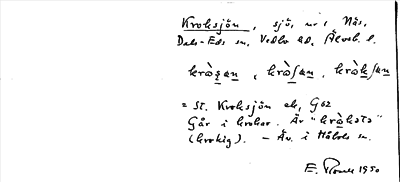 Kroksjön, sjö, nr 1, Nås,
Dals-Eds sn, Vedbo hd, Älvsb. l.
kròs̠an, kròʃan, kròkʃan
= St. Kroksjön ek, G02
Går i krokar. Är "kròkətə"
(krokig). – Äv. i Håbols sn.
E. 1950